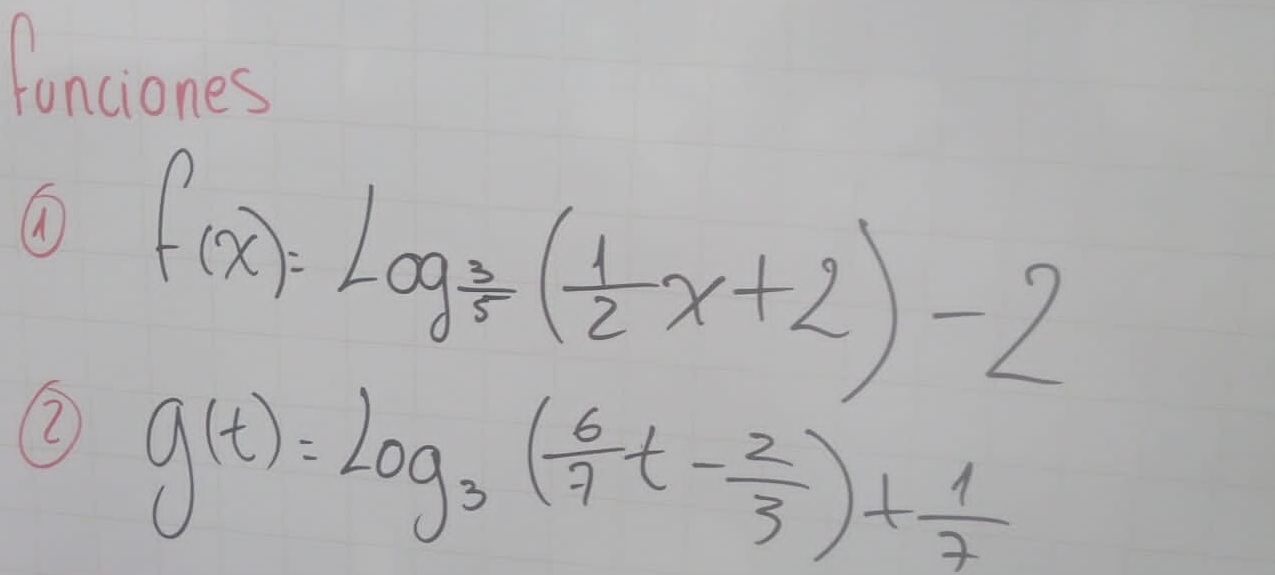 funciones
① f(x) = Log_{3/5} (1/2 x + 2) - 2
② g(t) = Log_3 (6/7 t - 2/3) + 1/7